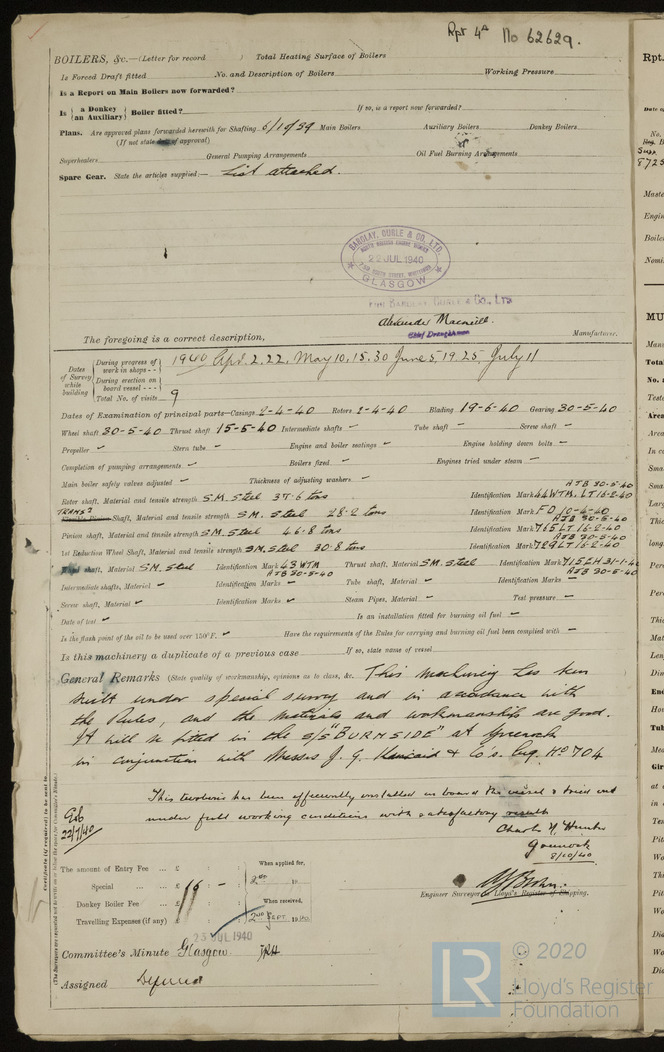 Rpt 4a No 62629.
BOILERS, &c.—(Letter for record ) Total Heating Surface of Boilers
Is Forced Draft fitted No. and Description of Boilers Working Pressure
Is a Report on Main Boilers now forwarded?
Is { a Donkey / an Auxiliary } Boiler fitted? If so, is a report now forwarded?
Plans. Are approved plans forwarded herewith for Shafting 6/10/39 Main Boilers Auxiliary Boilers Donkey Boilers
(If not state date of approval)
Superheaters General Pumping Arrangements Oil Fuel Burning Arrangements
Spare Gear. State the articles supplied:— List attached.
BARCLAY, CURLE & CO., LTD.
22 JUL 1940
GLASGOW
FOR BARCLAY, CURLE & CO., LTD
Alexander
Chief Draughtsman
The foregoing is a correct description, Manufacturer.
Dates of Survey while building
During progress of work in shops - - 1940 Apr. 2, 22, May 10, 15, 30 June 5, 19, 25 July 11
During erection on board vessel - - -
Total No. of visits 9
Dates of Examination of principal parts—Casings 2-4-40 Rotors 2-4-40 Blading 19-6-40 Gearing 30-5-40
Wheel shaft 30-5-40 Thrust shaft 15-5-40 Intermediate shafts ✓ Tube shaft ✓ Screw shaft ✓
Propeller ✓ Stern tube ✓ Engine and boiler seatings ✓ Engine holding down bolts ✓
Completion of pumping arrangements ✓ Boilers fixed ✓ Engines tried under steam ✓
Main boiler safety valves adjusted ✓ Thickness of adjusting washers ✓
AJB 30-5-40
Rotor shaft, Material and tensile strength S.M. Steel 37.6 tons Identification Mark 44 WTM. LT 16-2-40
TRANS?
Flexible Pinion Shaft, Material and tensile strength S.M. Steel 28.2 tons Identification Mark FD 10-4-40
AJB 30-5-40
Pinion shaft, Material and tensile strength S.M. Steel 46.8 tons Identification Mark 765 LT 16-2-40
AJB 30-5-40
1st Reduction Wheel Shaft, Material and tensile strength S.M. Steel 30.8 tons Identification Mark 729 LT 16-2-40
Wheel shaft, Material S.M. Steel Identification Mark 43 WTM Thrust shaft, Material S.M. Steel Identification Mark 715 LH 31-1-40
AJB 30-5-40 AJB 30-5-40
Intermediate shafts, Material ✓ Identification Marks ✓ Tube shaft, Material ✓ Identification Marks ✓
Screw shaft, Material ✓ Identification Marks ✓ Steam Pipes, Material ✓ Test pressure ✓
Date of test ✓ Is an installation fitted for burning oil fuel ✓
Is the flash point of the oil to be used over 150°F. ✓ Have the requirements of the Rules for carrying and burning oil fuel been complied with ✓
Is this machinery a duplicate of a previous case If so, state name of vessel
General Remarks (State quality of workmanship, opinions as to class, &c. This machinery has been
built under special survey and in accordance with
the Rules, and the materials and workmanship are good.
It will be fitted in the S/S "BURNSIDE" at Greenock
in conjunction with Messrs J. G. Kincaid & Co's. Eng. No 704
This turbine has been efficiently installed on board the vessel & tried out
under full working conditions with satisfactory result
Charles N. Hunter
Greenock
8/10/40
22/7/40
Certificate (if required) to be sent to
(The Surveyors are requested not to write on or below the space for Committee's Minute.)
The amount of Entry Fee ... £ : : When applied for,
Special ... ... £ 16 : - : 19
Donkey Boiler Fee ... £ : : When received,
Travelling Expenses (if any) £ : : 2nd Sept. 1940
Engineer Surveyor to Lloyd's Register of Shipping.
23 JUL 1940
Committee's Minute Glasgow
Assigned Deferred
LR © 2020
Lloyd's Register
Foundation
Rpt.
Date
No.
Reg.
8725
Maste
Engin
Boile
Nomi
MU
Man
Total
No.
Teste
Area
Area
In c
Sma
Sma
Larg
Thic
long.
Perc
Perc
Thic
Mat
Len
Din
End
Ho
Tub
Mea
Gir
at
in
Wo
The
Pit
Wo
Wo
Dia
Di